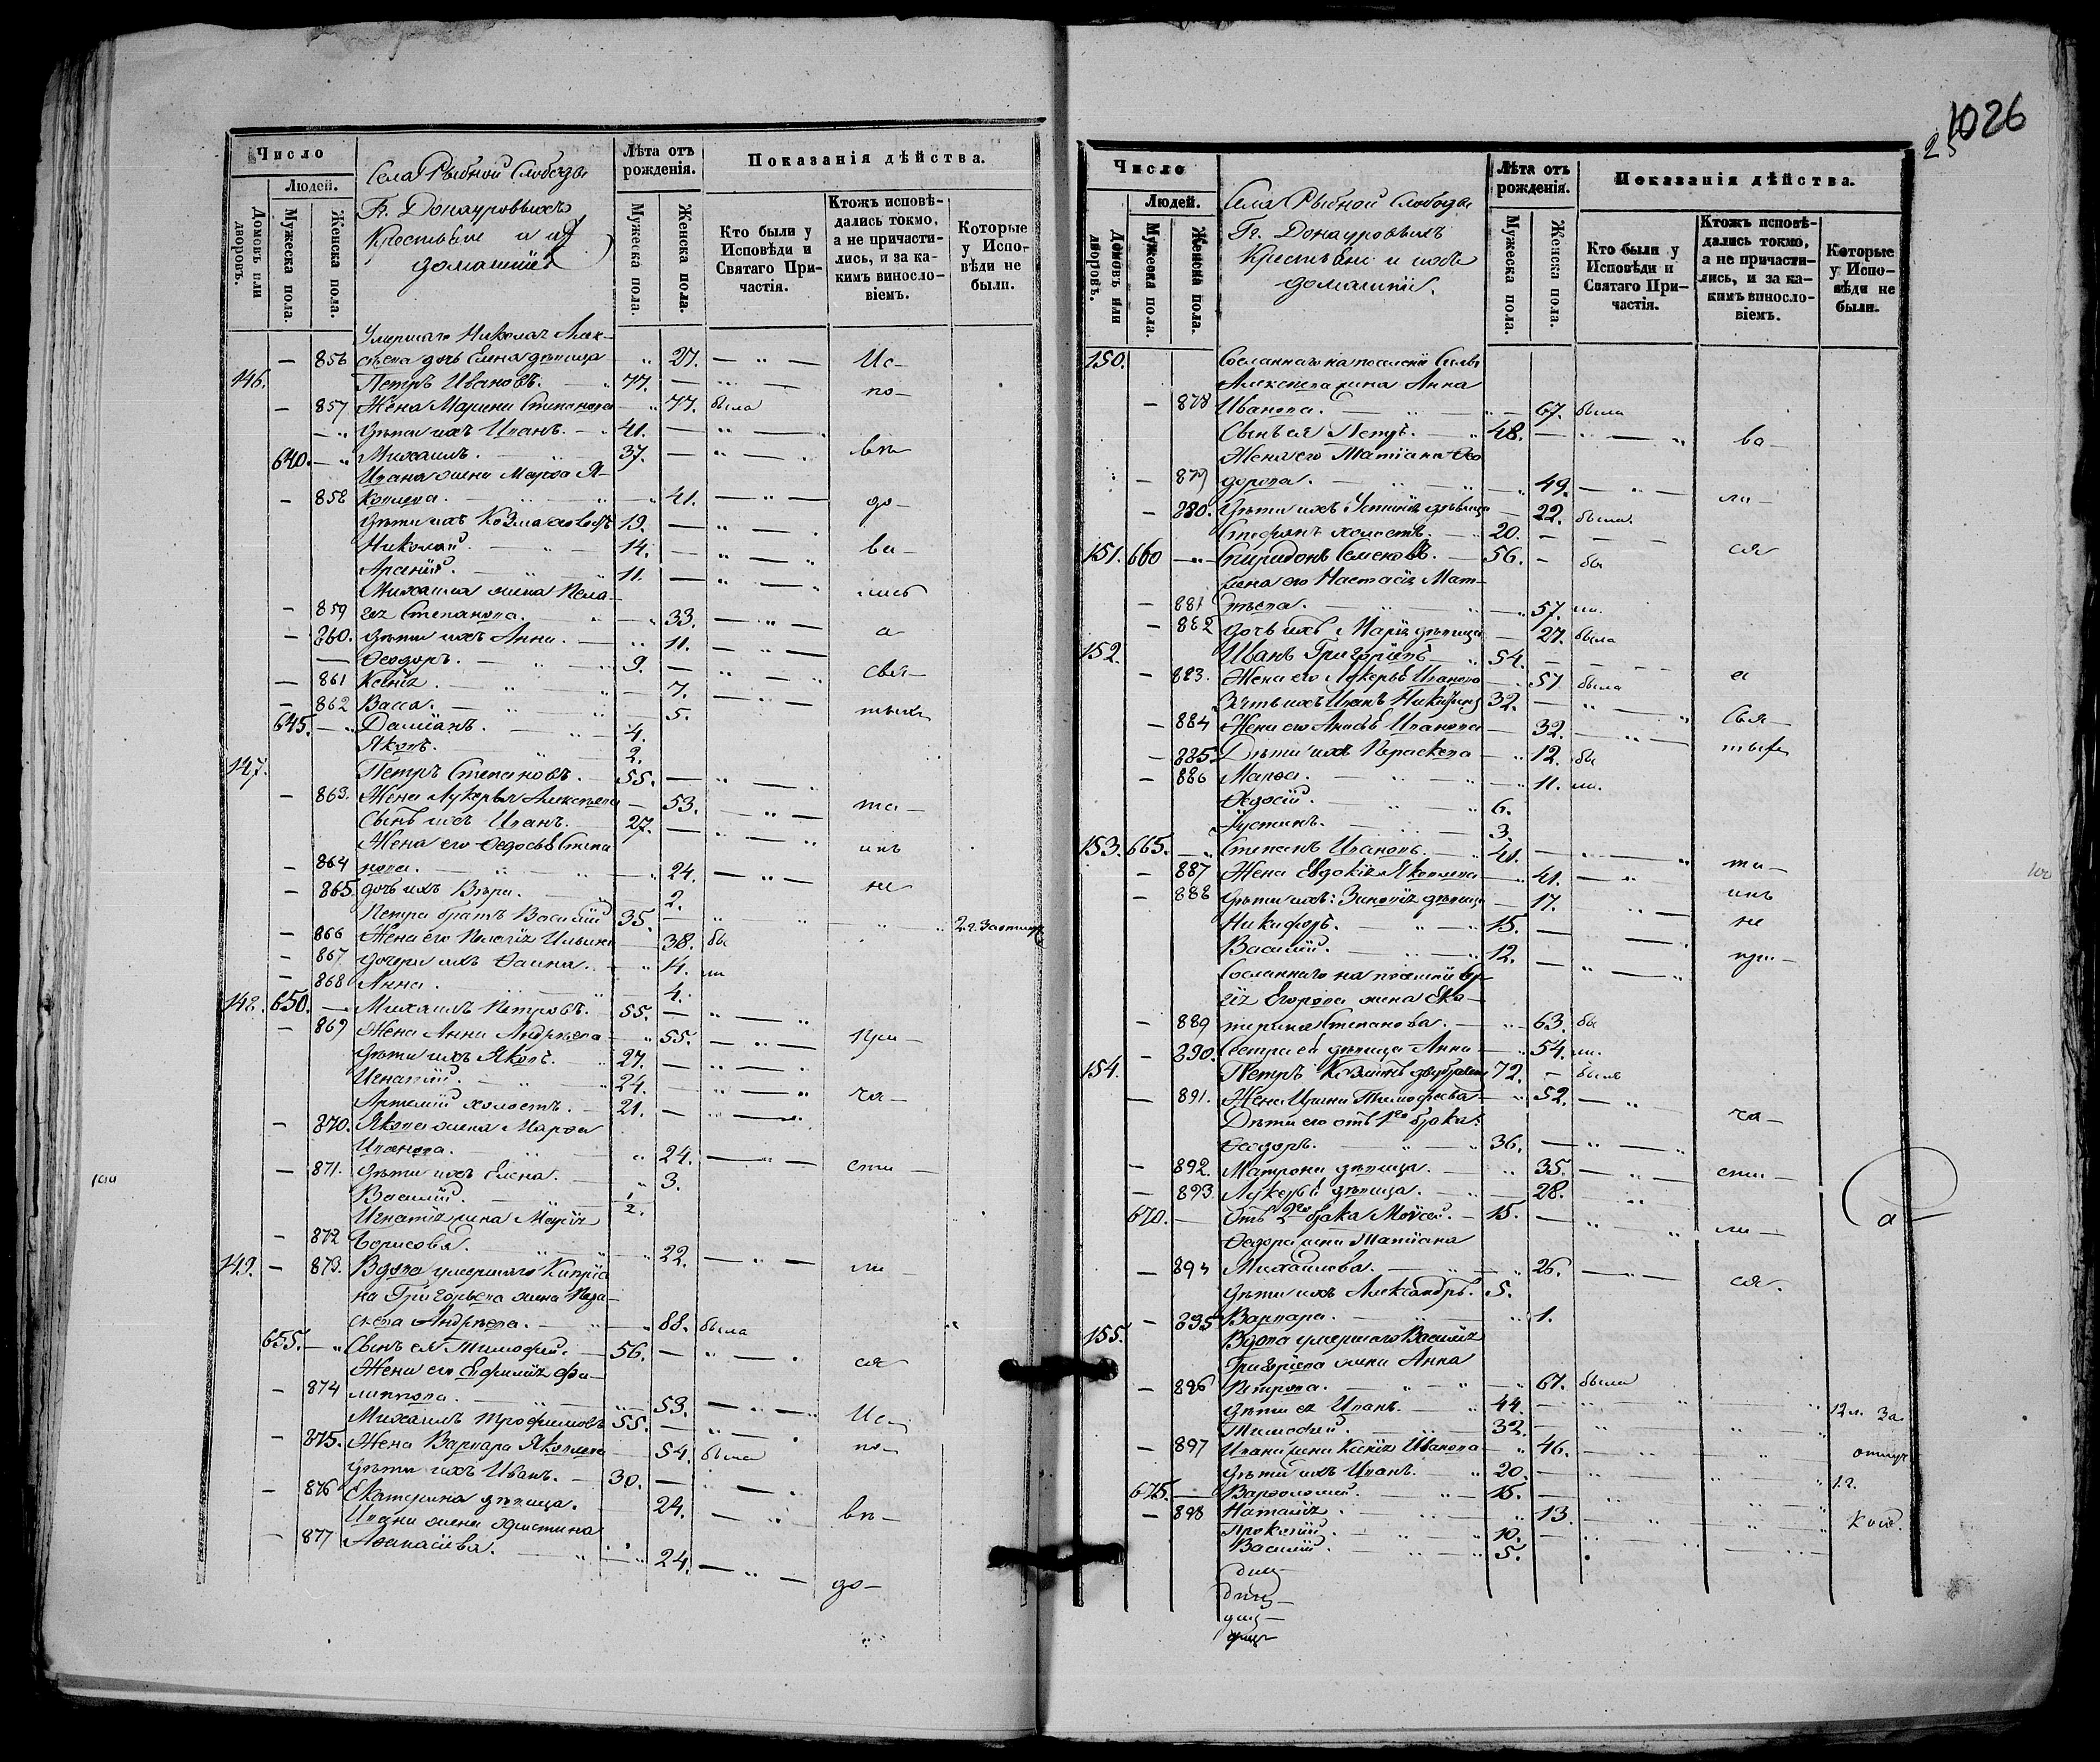 1026
25
Число
Людей.
Домовъ или дворовъ.
Мужеска пола.
Женска пола.
Села Рыбной Слободы
Гг. Донауровыхъ
Крестьяне и их
домашніе
Лѣта отъ рожденія.
Мужеска пола.
Женска пола.
Показанія дѣйства.
Кто были у Исповѣди и Святаго Причастія.
Ктожъ исповѣдались токмо, а не причастились, и за какимъ винословіемъ.
Которые у Исповѣди не были.
Умершаго Николая Алек-
— 856 сѣева дочь Елена дѣвица 27. Ис-
146. Петръ Ивановъ. 77. по-
— 857 Жена Марина Степанова 77. была
дѣти ихъ Иванъ. 41.
640. Михаилъ. 37. вѣ
Ивана жена Марѳа Я-
— 858 ковлева. 41. до-
дѣти ихъ Козма холостъ 19.
Николай. 14. ва-
Арсеній. 11.
Михаила жена Пела- лись
— 859 гія Степанова. 33.
— 860. дѣти ихъ Анна. 11. а
Ѳеодоръ. 9.
— 861 Ксенія. 7. свя-
— 862 Васса. 5. тыхъ
645. Даміанъ. 4.
Яковъ. 2.
147. Петръ Степановъ. 55.
— 863. Жена Лукерья Алексѣева 53. та-
Сынъ ихъ Иванъ. 27.
Жена его Ѳедосья Степа инъ
— 864 нова. 24.
— 865. дочь ихъ Вѣра. 2. не
Петра братъ Василій 35. 2 г. За отлуч
— 866 Жена его Пелагія Ильина 38. бы
— 867 дочери ихъ Ѳаина. 14. ли
— 868 Анна. 4.
148. 650. Михаилъ Петровъ. 55.
— 869 Жена Анна Андреева 55. при-
дѣти ихъ Яковъ. 27.
Игнатій. 24.
Артемій холостъ. 21. ча-
— 870. Якова жена Марѳа
Иванова. 24.
— 871. дѣти ихъ Елена. 3. сти-
Василій. 1/2.
Игнатія жена Марія
— 872 Борисова. 22.
149. — 873. Вдова умершаго Кипріа ли
на Григорьева жена Пара-
скева Андреева. 88. была
655. Сынъ ея Тимофей. 56. ся
Жена его Евфимія Фи-
— 874 липпова. 53.
Михаилъ Трофимовъ 55. Ис
— 875. Жена Варвара Яковлева 54. была по-
дѣти ихъ Иванъ. 30.
— 876 Екатерина дѣвица. 24. вѣ-
Ивана жена Христина
— 877 Аѳанасіева. 24. до-
Число
Людей.
Домовъ или дворовъ.
Мужеска пола.
Женска пола.
Села Рыбной Слободы
Гг. Донауровыхъ
Крестьяне и ихъ
домашніе.
Лѣта отъ рожденія.
Мужеска пола.
Женска пола.
Показанія дѣйства.
Кто были у Исповѣди и Святаго Причастія.
Ктожъ исповѣдались токмо, а не причастились, и за какимъ винословіемъ.
Которые у Исповѣди не были.
150. Сосланнаго на поселеніе
Алексѣева жена Анна
— 878 Иванова. 67. была
Сынъ ея Петръ. 48. ва-
Жена его Матіана Ѳео
— 879 дорова. 49. ли-
— 880. дѣти ихъ Устинія дѣвица 22. была.
Стефанъ холостъ. 20. ся
151. 660 Спиридонъ Семеновъ. 56. бы
жена его Настасія Мат-
— 881 вѣева. 57. ли.
— 882 дочь ихъ Марія дѣвица 27. была
152. Иванъ Григорьевъ 54. а
— 883. Жена его Лукерья Иванова 57 была
Зять ихъ Иванъ Никитинъ 32. Свя-
— 884 Жена его Анисья Иванова 32. тыхъ
— 885 Дѣти ихъ Параскева 12. бы
— 886 Марѳа. 11. ли.
Ѳедосій. 6.
Іустинъ. 3.
153. 665. Степанъ Ивановъ. 41. та-
— 887 Жена Евдокія Яковлева 41. инъ
— 888 дѣти ихъ: Зиновія дѣвица 17. не
Никифоръ. 15.
Василій. 12. при-
Сосланнаго на поселеніе Сер
гія Егорова жена Ека-
— 889 терина Степанова. 63. бы
— 890. Сестра ея дѣвица Анна 54. ли.
154. Петръ Козминъ двубрачн 72. былъ
— 891. Жена Ирина Тимофеева 52.
Дѣти его отъ 1го брака: ча-
Ѳеодоръ. 36.
— 892. Матрона дѣвица. 35. сти-
— 893. Лукерья дѣвица. 28.
670. Отъ 2го брака Моисей. 15. ли-
Ѳедора жена Матіана
— 894 Михайлова. 26. ся.
дѣти ихъ Александръ. 5.
— 895 Варвара. 1.
155. Вдова умершаго Василія
Григорьева жена Анна
— 896 Петрова. 67. была
дѣти ея Иванъ. 44. 12 л. За
Тимофей. 32.
— 897 Ивана жена Ксенія Иванова 46. отлуч
дѣти ихъ Иванъ. 20. 1 г.
675. Варѳоломей. 15.
— 898 Наталія. 13. кою.
Прокопій. 10.
Василій. 5.